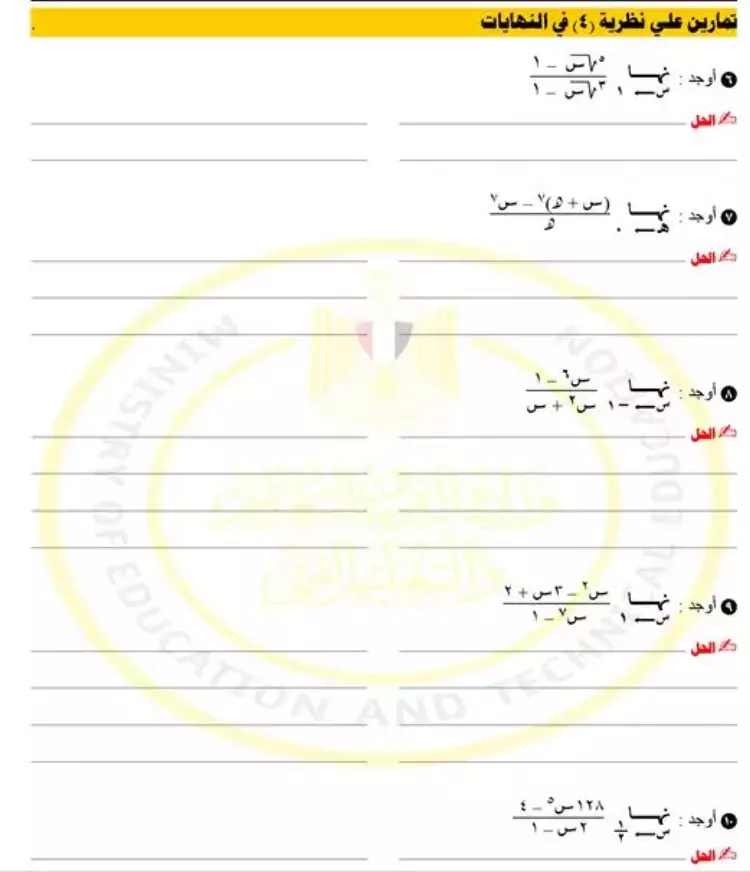 تمارين علي نظرية (٤) في النهايات
٦ أوجد : نهـــا س ← ١ (⁵√س − ١) / (³√س − ١)
الحل
٧ أوجد : نهـــا هـ ← ٠ ((س + هـ)^٧ − س^٧) / هـ
الحل
٨ أوجد : نهـــا س ← −١ (س^٦ − ١) / (س^٢ + س)
الحل
٩ أوجد : نهـــا س ← ١ (س^٢ − ٣س + ٢) / (س^٧ − ١)
الحل
١٠ أوجد : نهـــا س ← ١/٢ (١٢٨س^٥ − ٤) / (٢س − ١)
الحل
MINISTRY OF EDUCATION AND TECHNICAL EDUCATION